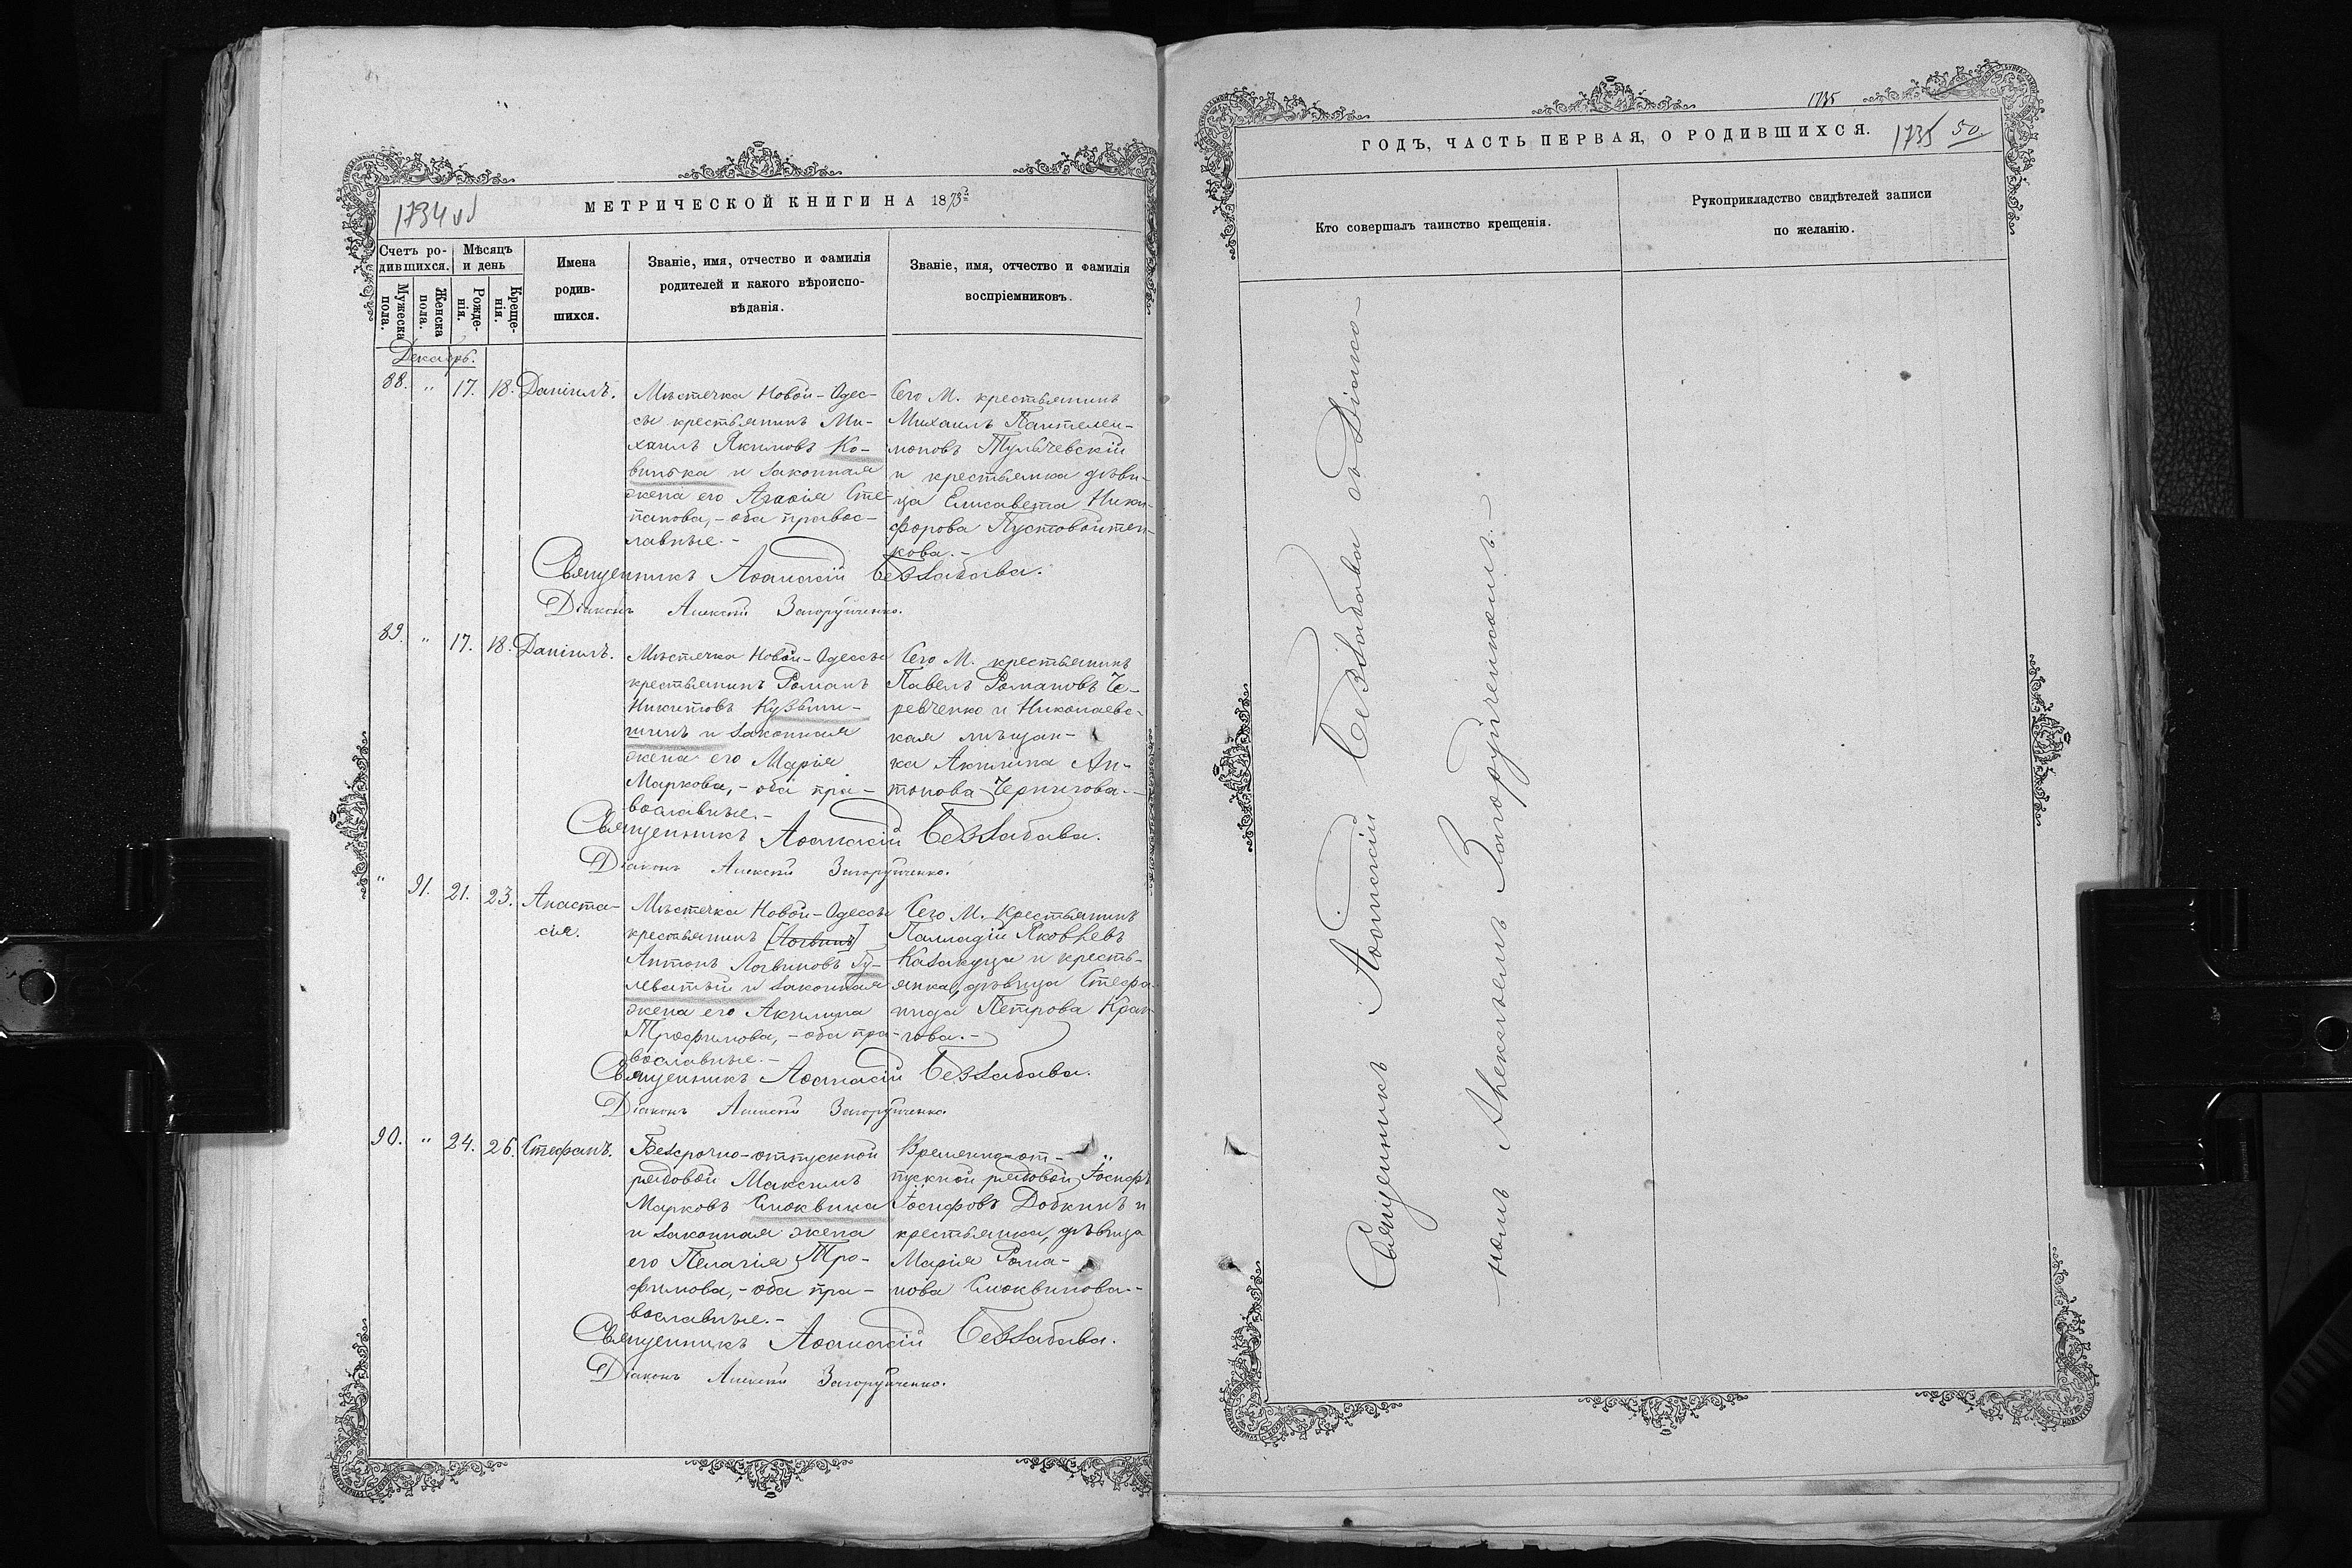 1734 об
МЕТРИЧЕСКОЙ КНИГИ НА 1873
Счетъ ро-
дившихся.
Мѣсяцъ
и день
Мужеска
пола.
Женска
пола.
Рожде-
нія.
Креще-
нія.
Имена
родив-
шихся.
Званіе, имя, отчество и фамилія
родителей и какого вѣроиспо-
вѣданія.
Званіе, имя, отчество и фамилія
воспріемниковъ.
Декабрь.
88. " 17. 18. Даніилъ.
Мѣстечка Новой-Одес-
сы крестьянинъ Ми-
хаилъ Якимовъ Ко-
винька и законная
жена его Агафія Сте-
панова, - оба правос-
лавные. -
Сего М. крестьянинъ
Михаилъ Пантелеи-
моновъ Тульчевскій
и крестьянка дѣви-
ца Елисавета Ники-
форова Пустовойтен-
кова. -
Священникъ Аѳанасій Беззабава.
Діаконъ Алексѣй Загоруйченко.
89. " 17. 18. Даніилъ.
Мѣстечка Новой-Одессы
крестьянинъ Романъ
Никитовъ Кузьми-
шинъ и законная
жена его Марія
Маркова, - оба пра-
вославные. -
Сего М. крестьянинъ
Павелъ Романовъ Че-
ревченко и Николаевс-
кая мѣщан-
ка Акилина Ан-
тонова Чернигова. -
Священникъ Аѳанасій Беззабава.
Діаконъ Алексѣй Загоруйченко.
" 91. 21. 23. Анаста-
сія.
Мѣстечка Новой-Одессы
крестьянинъ [Логвинъ]
Антонъ Логвиновъ Гу-
леватый и законная
жена его Акилина
Трофимова, - оба пра-
вославные. -
Сего М. Крестьянинъ
Палладій Яковлевъ
Казакуца и кресть-
янка, дѣвица Стефа-
нида Петрова
Священникъ Аѳанасій Беззабава.
Діаконъ Алексѣй Загоруйченко.
90. " 24. 26. Стефанъ.
Безсрочно-отпускной
рядовой Максимъ
Марковъ Смоквина
и законная жена
его Пелагія Тро-
фимова, - оба пра-
вославные. -
Временно-от-
пускной рядовой Іосифъ
Іосифовъ Добкинъ и
крестьянка, дѣвица
Марія Рома-
нова Смоквинова. -
Священникъ Аѳанасій Беззабава.
Діаконъ Алексѣй Загоруйченко.
1735
ГОДЪ, ЧАСТЬ ПЕРВАЯ, О РОДИВШИХСЯ.
1735 50
Кто совершалъ таинство крещенія.
Рукоприкладство свидѣтелей записи
по желанію.
Священникъ Аѳанасій Беззабава съ Діако-
номъ Алексѣемъ Загоруйченкомъ. -